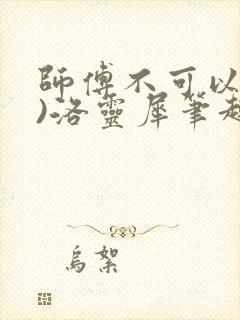 師傅不可以
)洛靈犀筆趣
烏絮